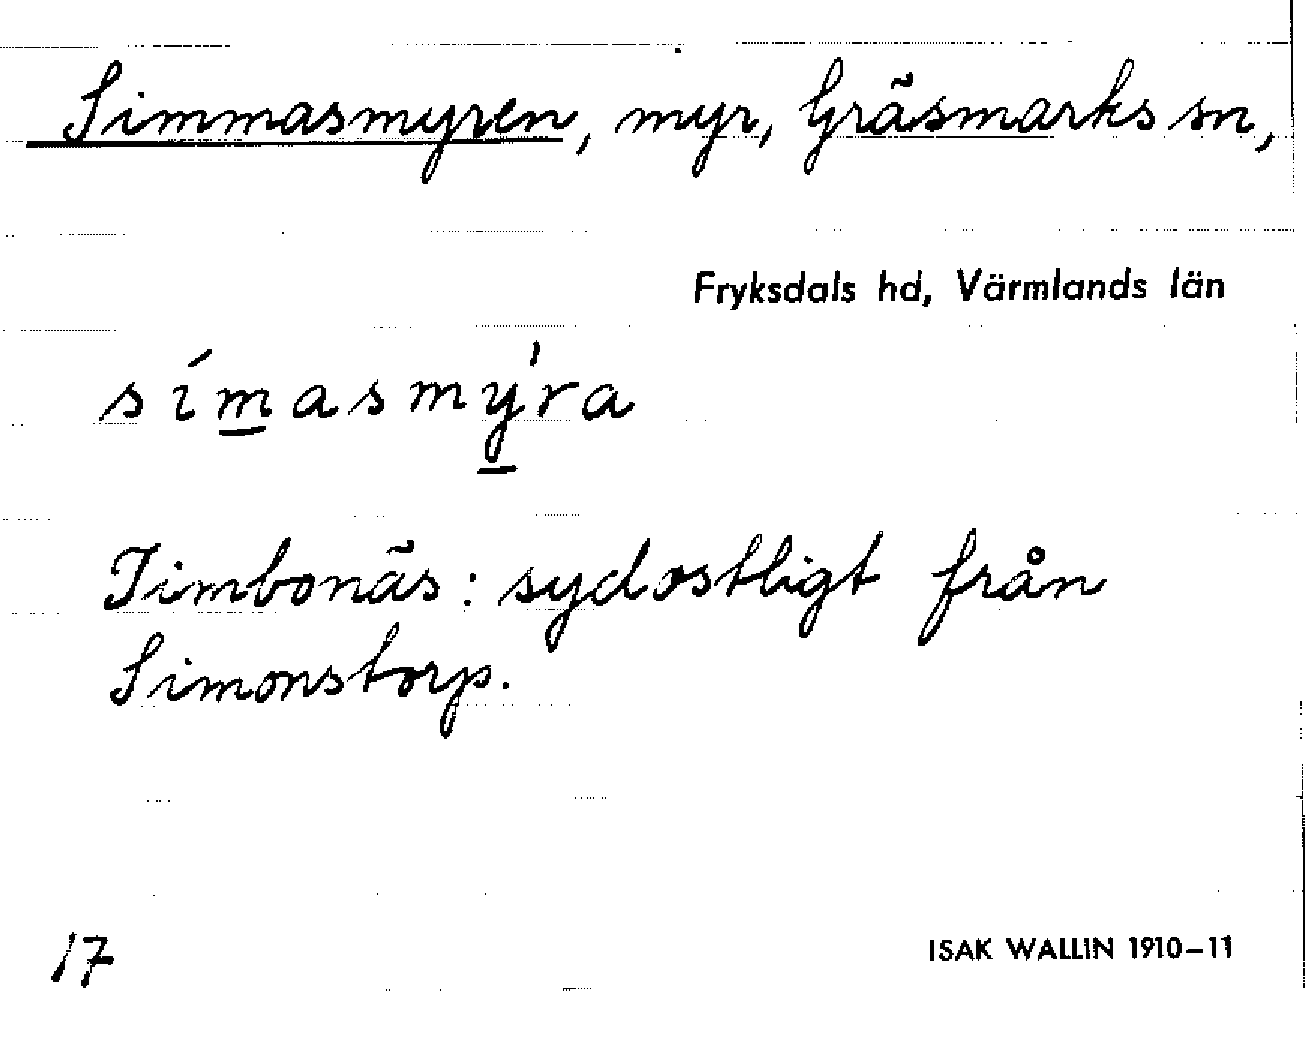 Simmasmyren, myr, Gräsmarks sn,
Fryksdals hd, Värmlands län
símasmýra
Timbonäs: sydostligt från
Simonstorp.
17
ISAK WALLIN 1910–11